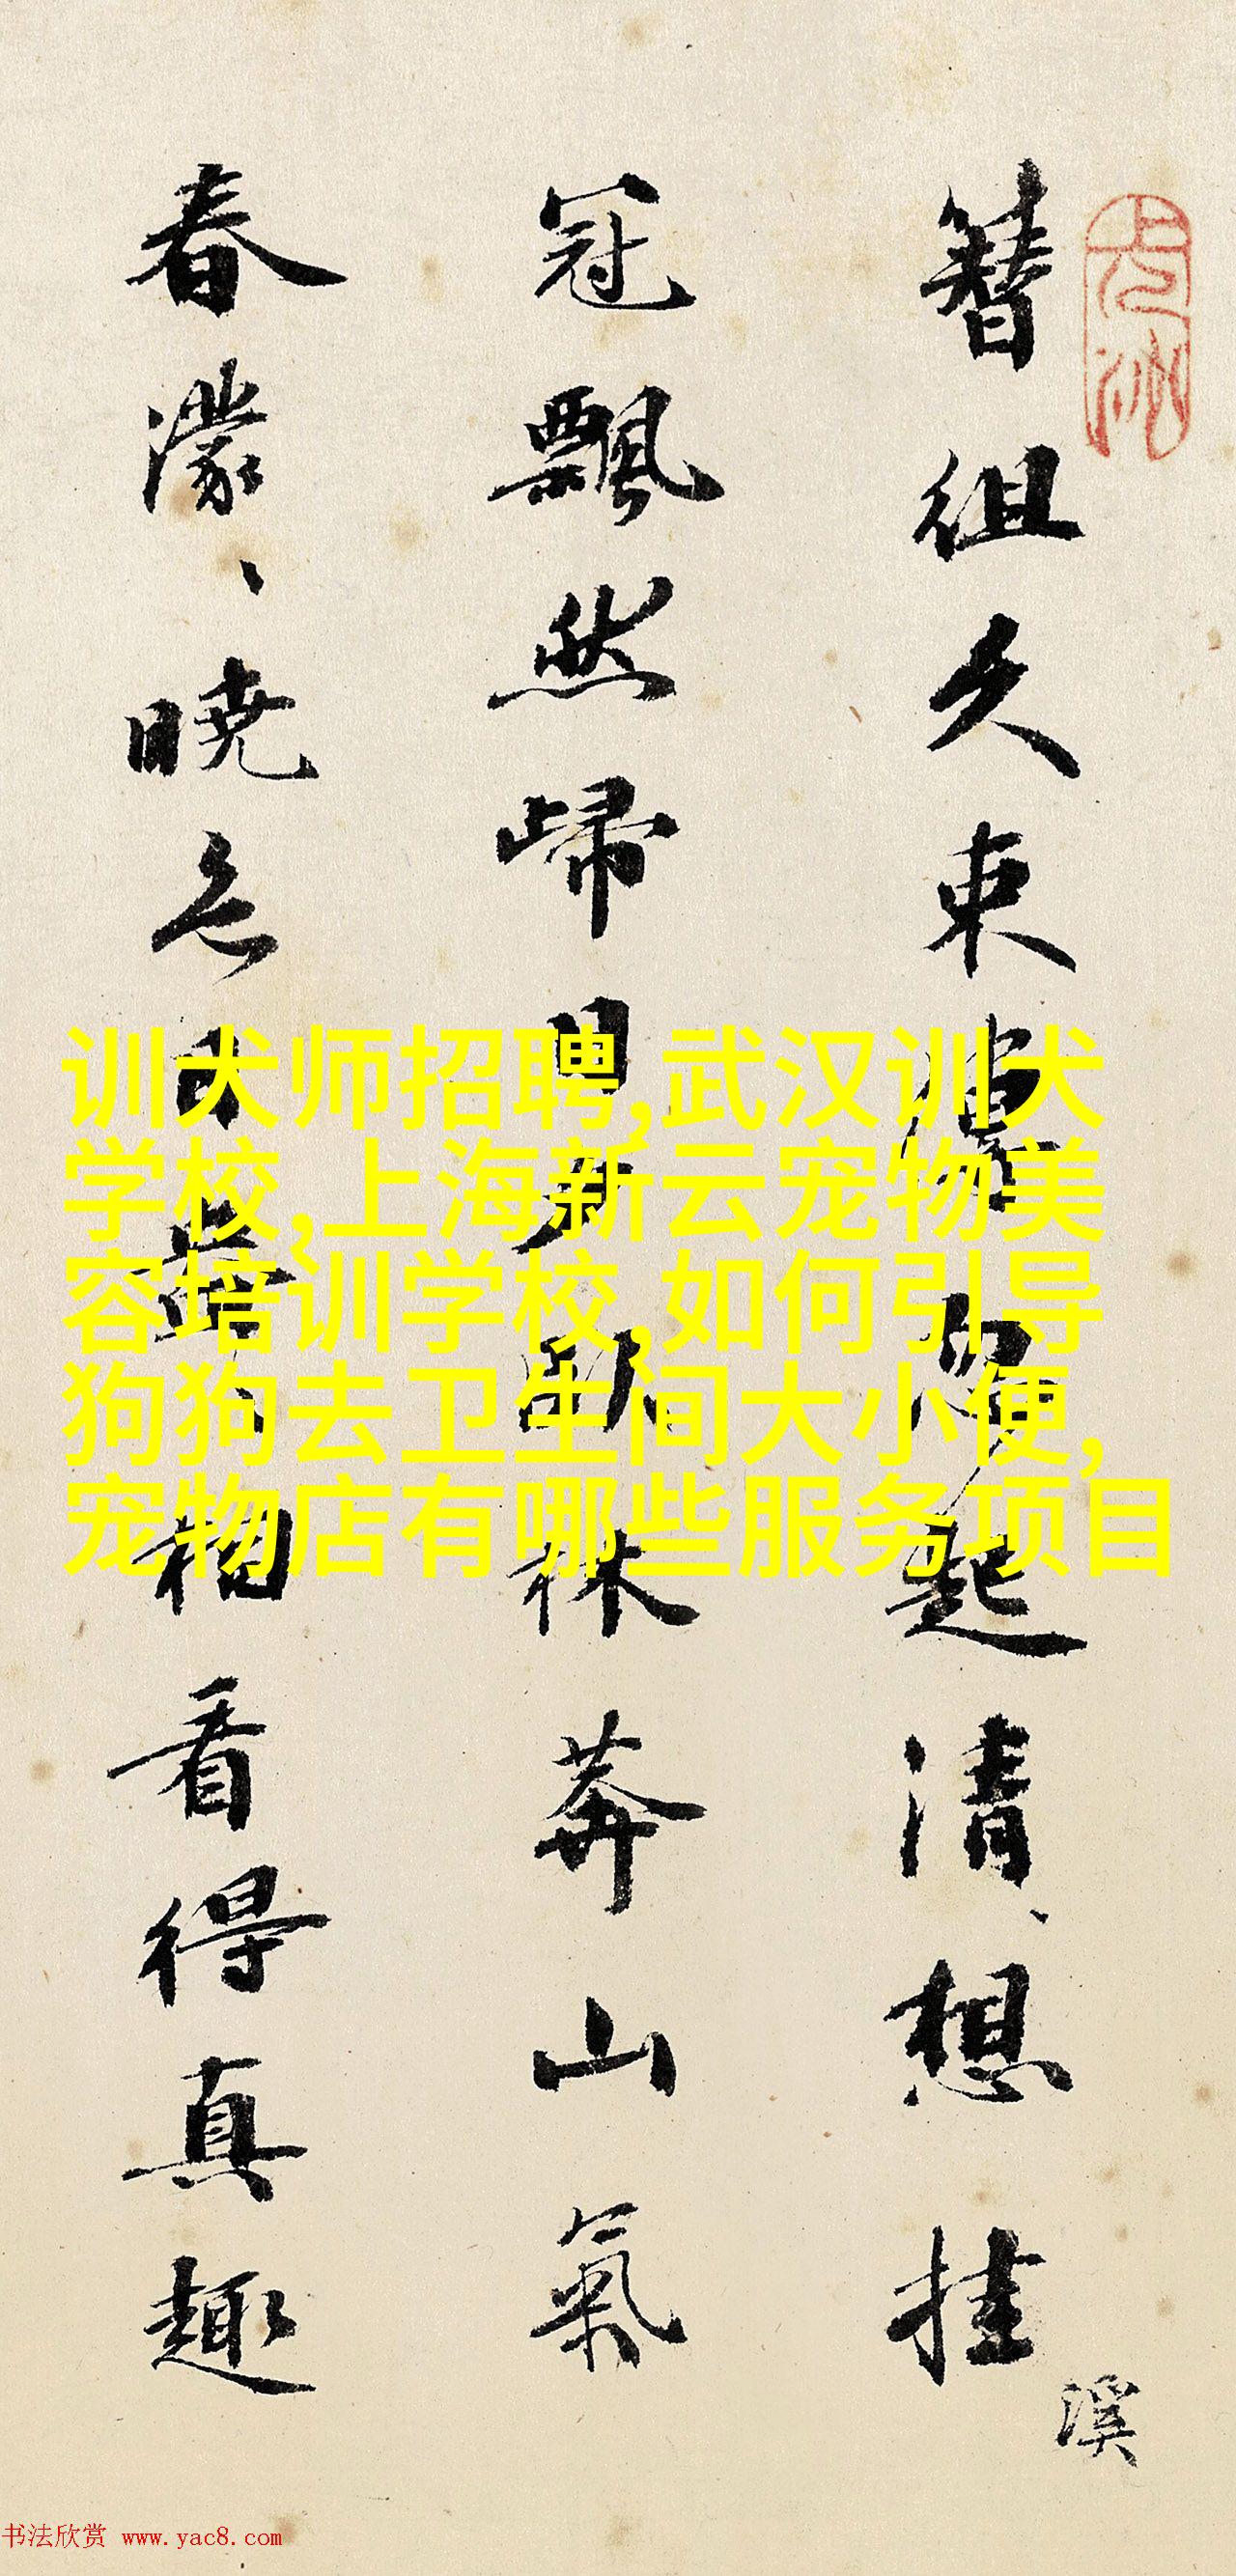 簪組久束起清、想挂
冠飄然歸卧林莽山氣
春濛、曉色看得真趣
溪
训犬师招聘,武汉训犬
学校,上海新云宠物美
容培训学校,如何引导
狗狗去卫生间大小便,
宠物店有哪些服务项目
书法欣赏 www.yac8.com